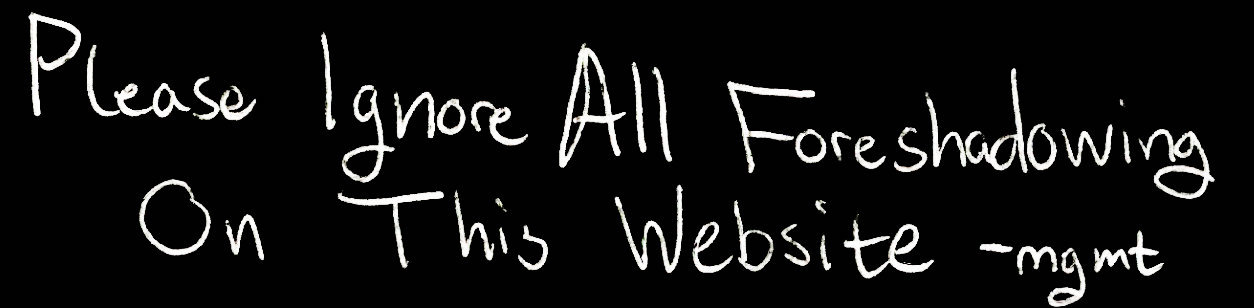 Please Ignore All Foreshadowing
On This Website -mgmt